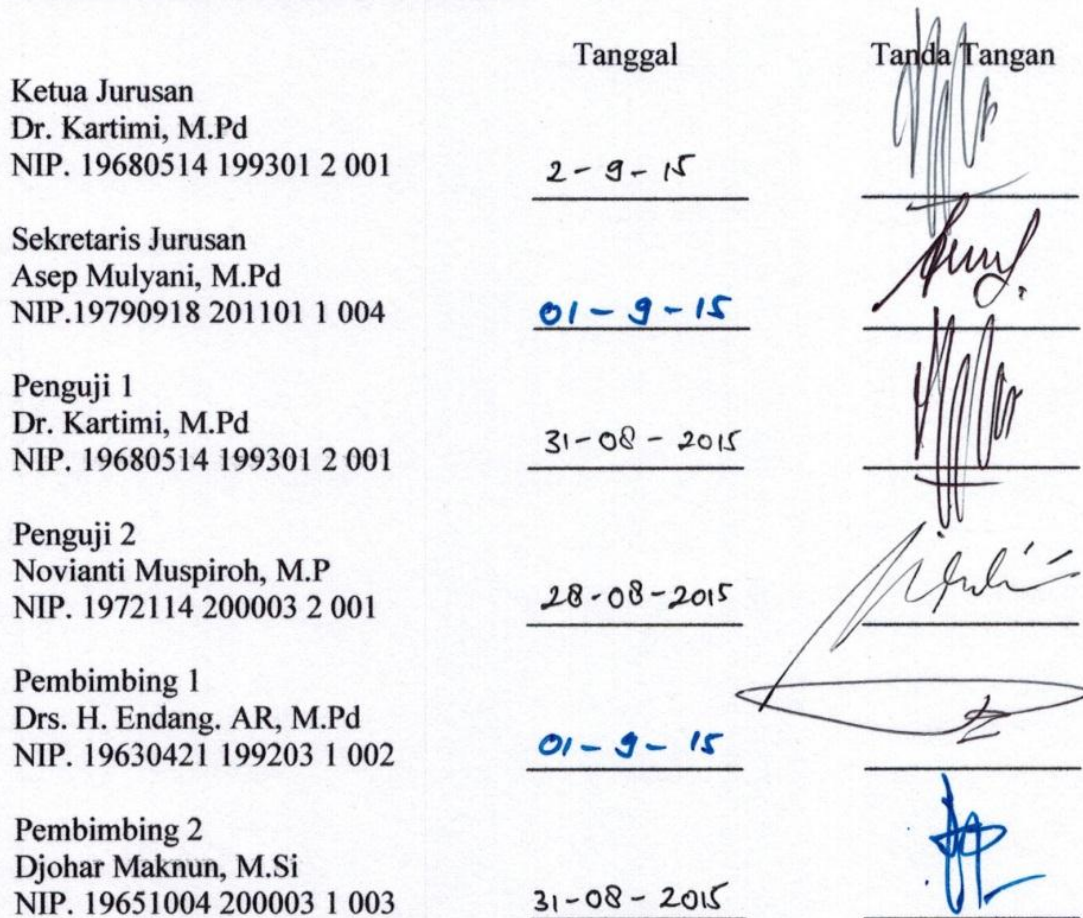 Tanggal Tanda Tangan
Ketua Jurusan
Dr. Kartimi, M.Pd
NIP. 19680514 199301 2 001 2-9-15
Sekretaris Jurusan
Asep Mulyani, M.Pd
NIP.19790918 201101 1 004 01-9-15
Penguji 1
Dr. Kartimi, M.Pd
NIP. 19680514 199301 2 001 31-08-2015
Penguji 2
Novianti Muspiroh, M.P
NIP. 1972114 200003 2 001 28-08-2015
Pembimbing 1
Drs. H. Endang. AR, M.Pd
NIP. 19630421 199203 1 002 01-9-15
Pembimbing 2
Djohar Maknun, M.Si
NIP. 19651004 200003 1 003 31-08-2015